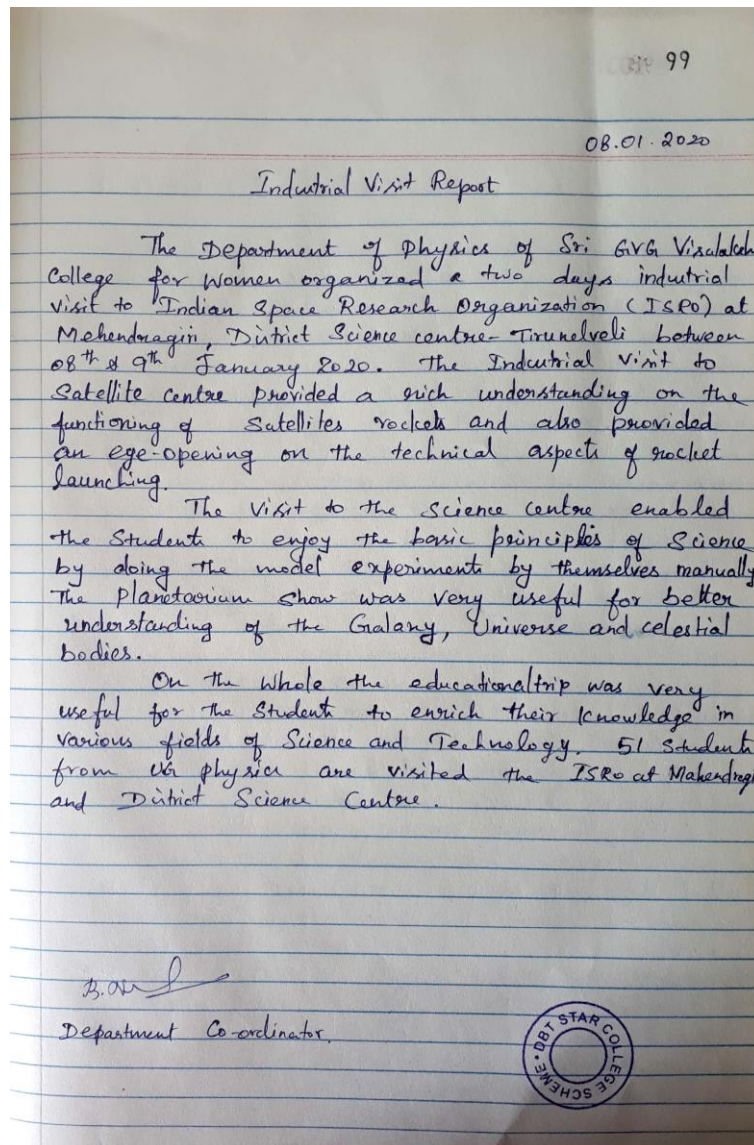 99
08.01.2020
Industrial Visit Report
The Department of Physics of Sri GVG Visalaksh
College for Women organized a two days industrial
visit to Indian Space Research Organization (ISRO) at
Mehendragiri, District Science centre- Tirunelveli between
08th & 9th January 2020. The Industrial visit to
Satellite centre provided a rich understanding on the
functioning of Satellites rockets and also provided
an eye-opening on the technical aspects of rocket
launching.
The visit to the science centre enabled
the Students to enjoy the basic principles of Science
by doing the model experiments by themselves manually
The Planetarium show was very useful for better
understanding of the Galaxy, Universe and celestial
bodies.
On the whole the educational trip was very
useful for the Students to enrich their knowledge in
various fields of Science and Technology. 51 Students
from UG physics are visited the ISRO at Mahendragi
and District Science Centre.
Department Co-ordinator.
DBT STAR COLLEGE SCHEME